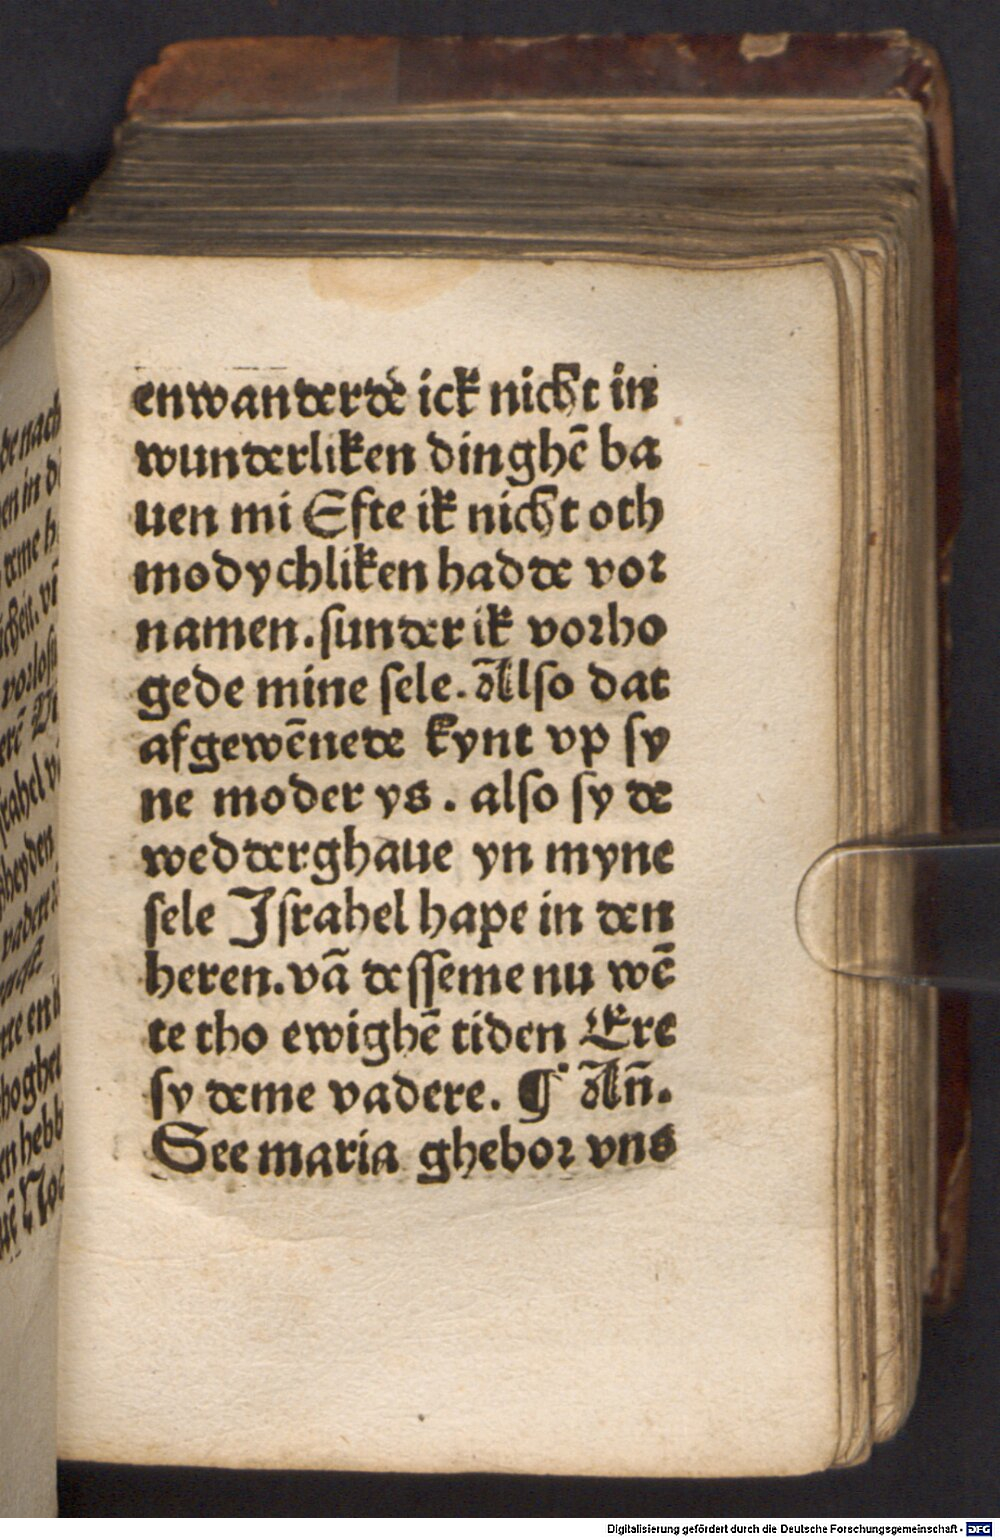 enwanderdē ick nicht in
wunderliken dinghē ba
uen mi Efte ik nicht oth
modychliken hadde vor
namen. sunder ik vorho
gede mine sele. Also dat
afgewēnede kynt vp sy
ne moder ys. also sy de
wedderghaue yn myne
sele Israhel hape in den
heren. vā desseme nu wē
te tho ewighē tiden Ere
sy deme vadere. ¶ An̄.
See maria ghebor vns
Digitalisierung gefördert durch die Deutsche Forschungsgemeinschaft - DFG